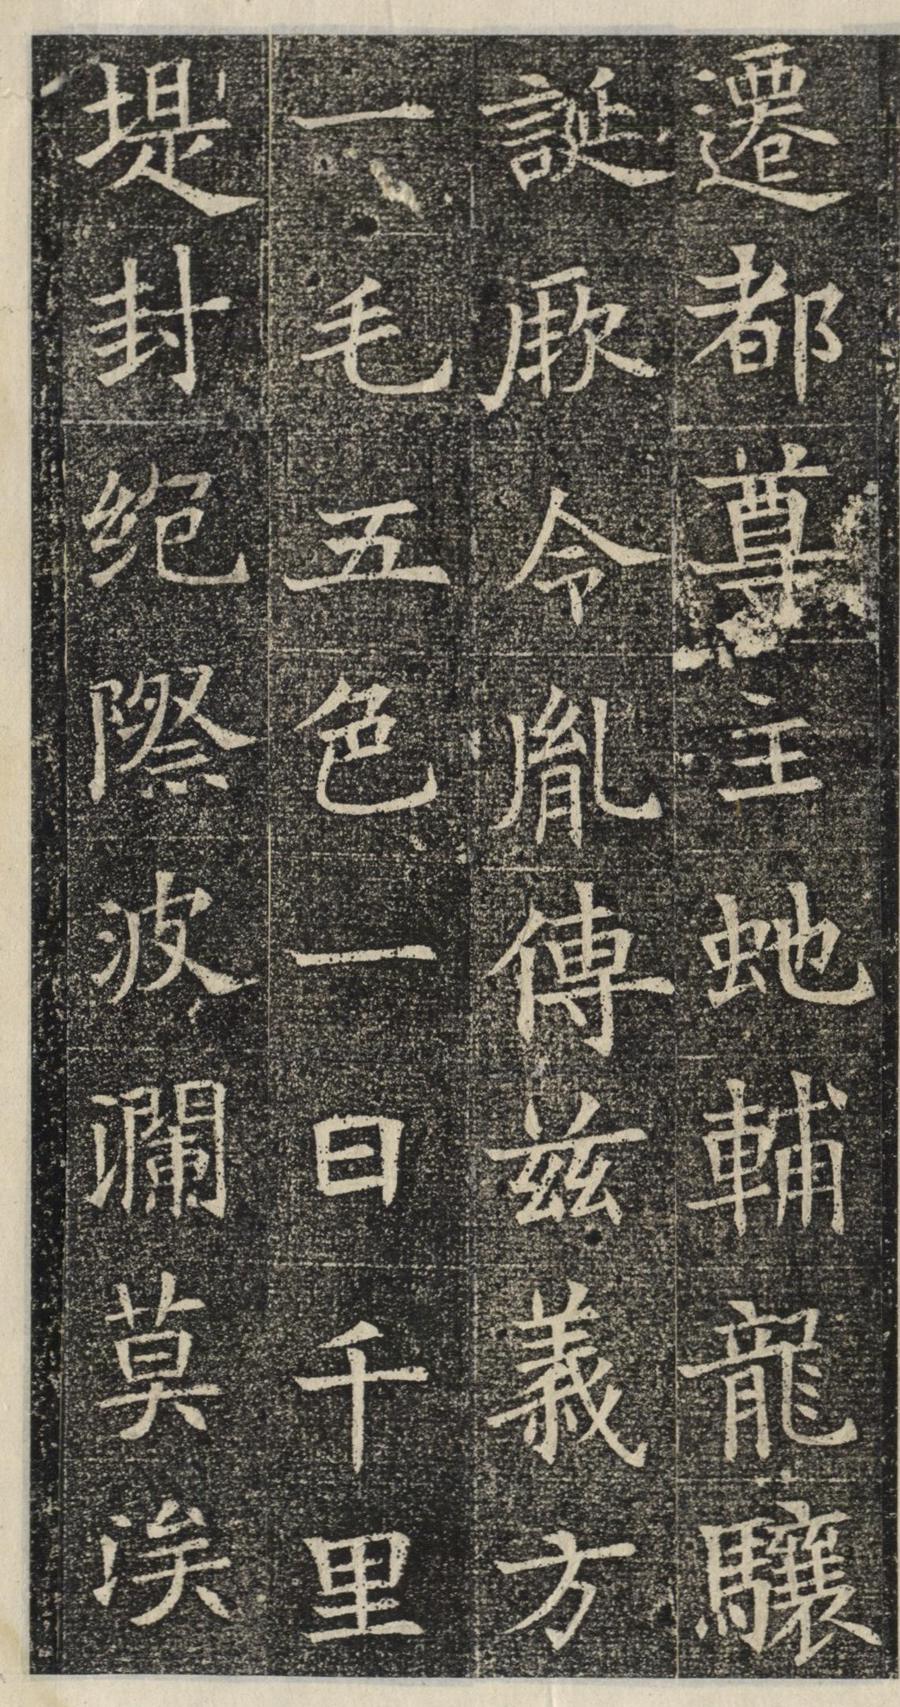 遷都尊主虵輔龍驤
誕厥令胤傳茲義方
一毛五色一日千里
堤封絕際波瀾莫涘